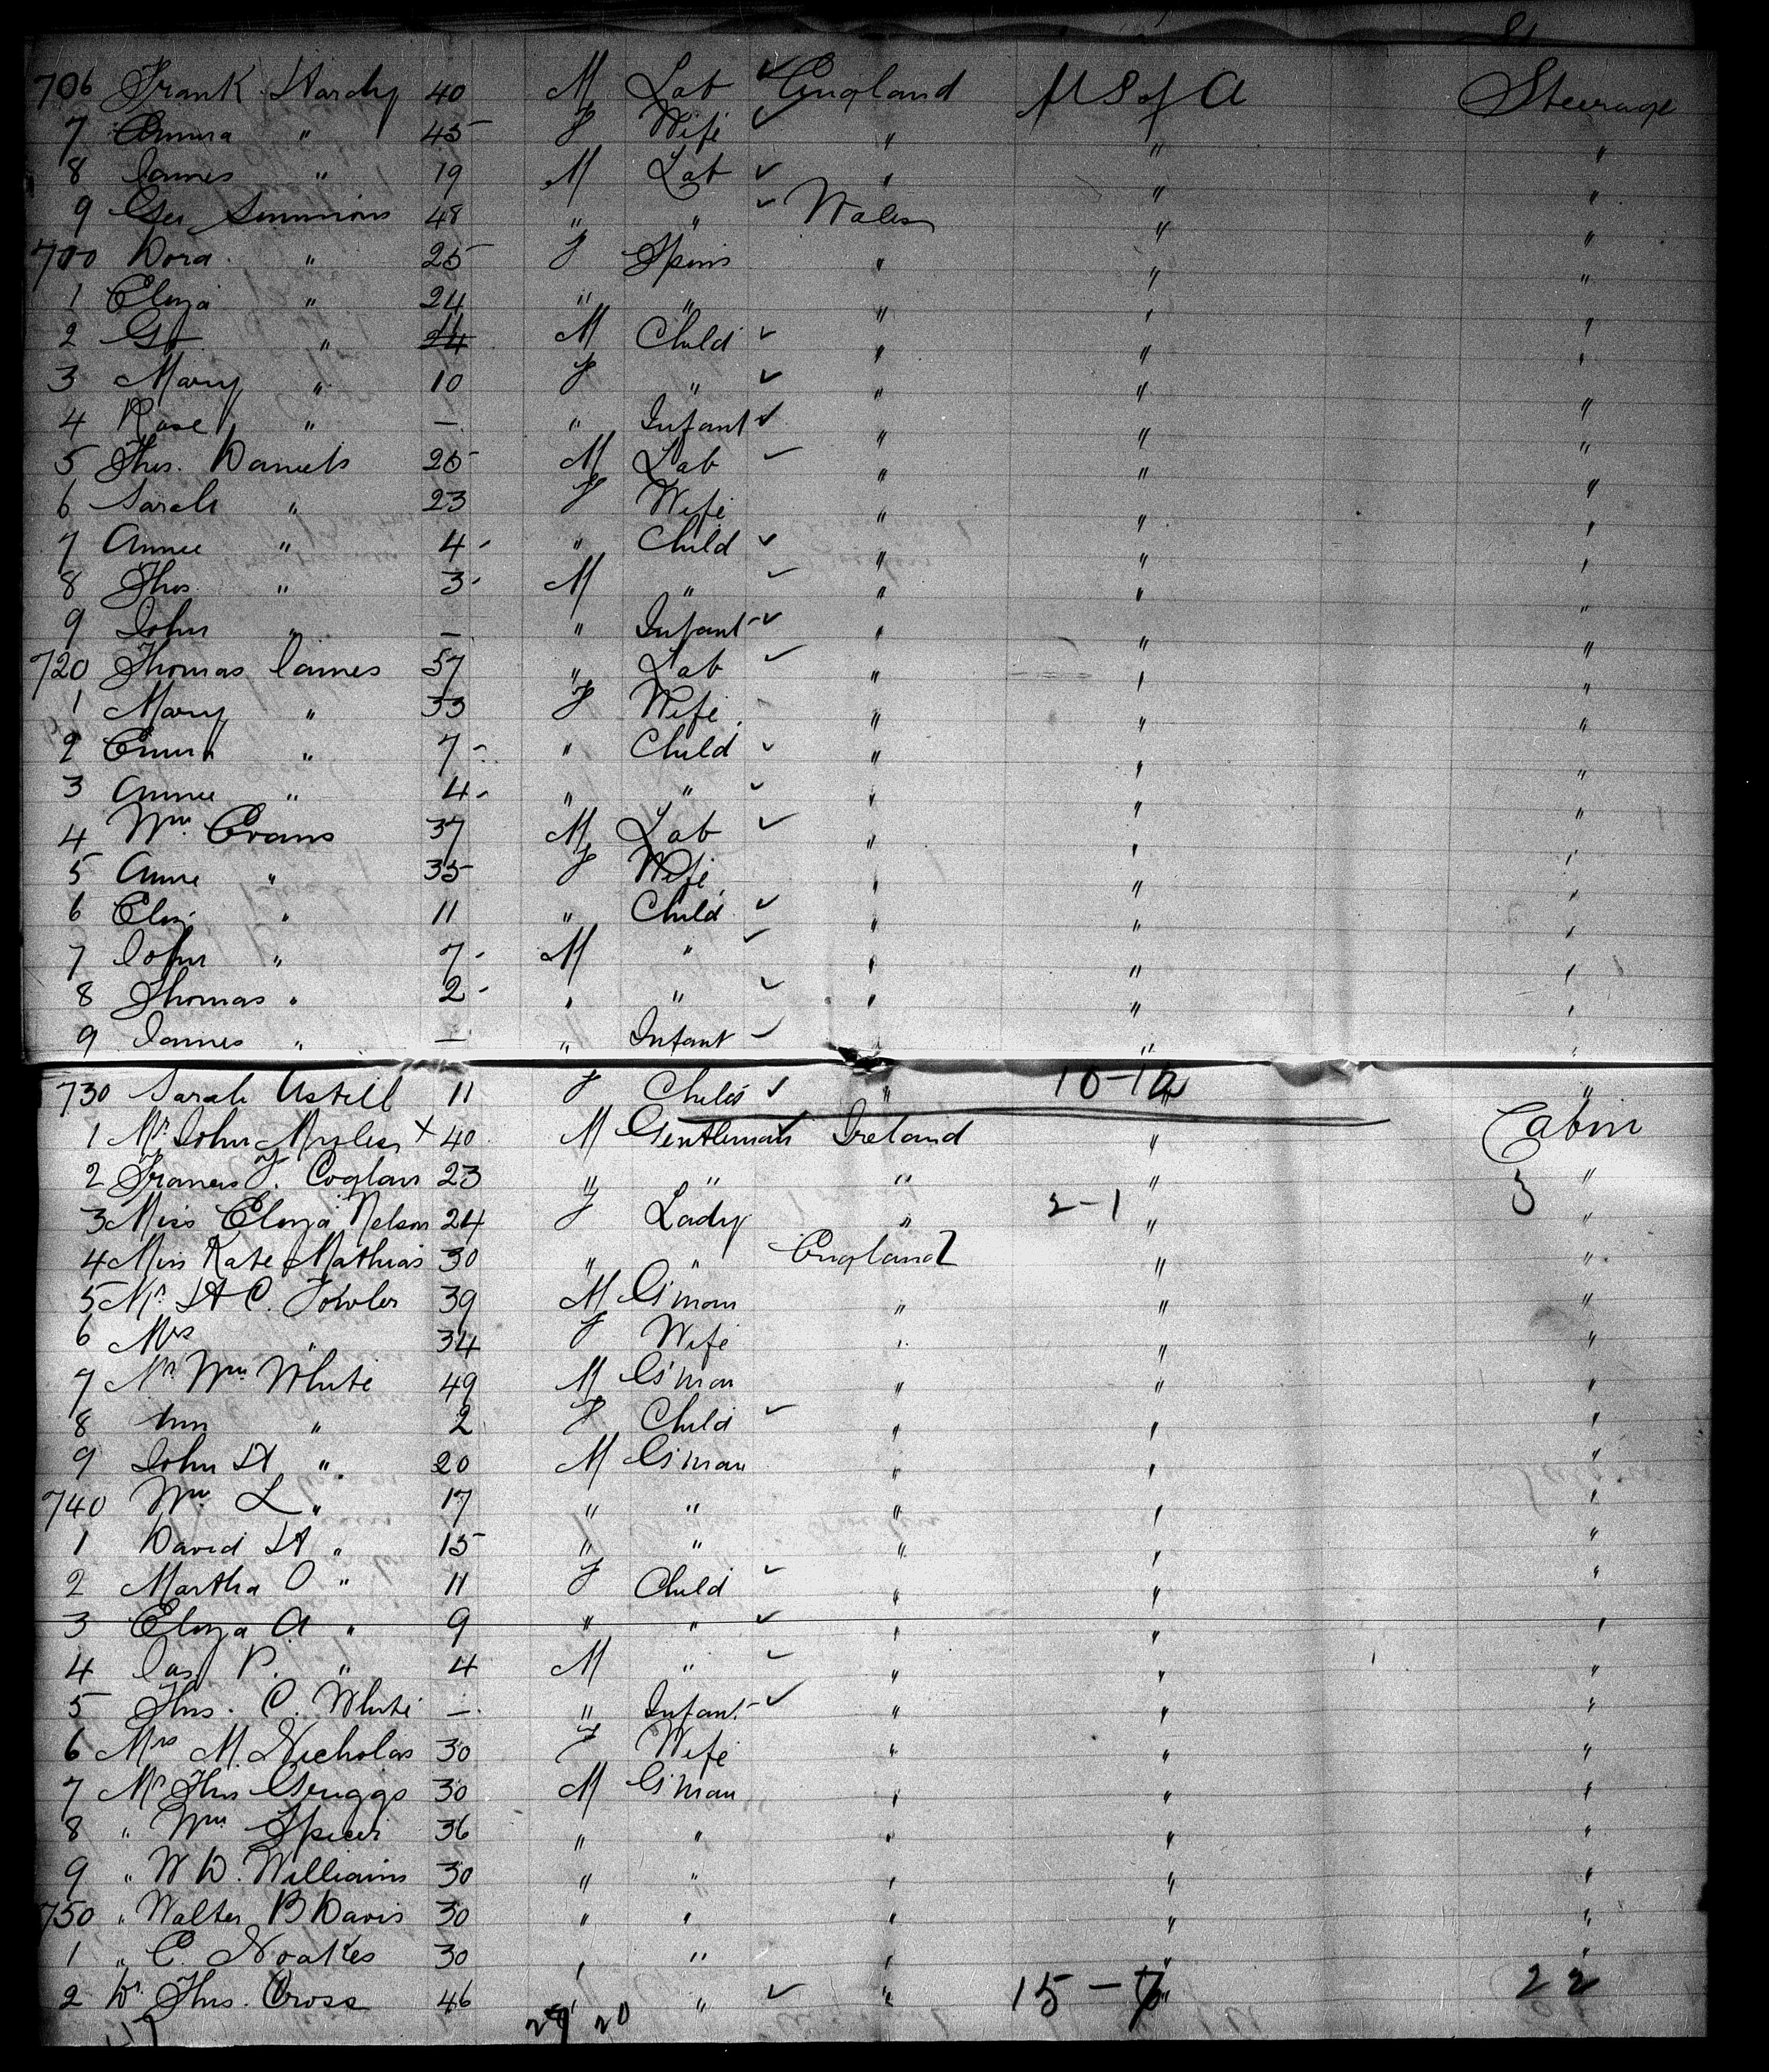 706 Frank Hardy 40 M Lab ✓ England U S of A Steerage
7 Emma " 45 F Wife ✓ " " "
8 James " 19 M Lab ✓ " " "
9 Geo Simmions 48 " " ✓ Wales " "
710 Dora " 25 F Spins " " "
1 Eliza " 24 " " " " "
2 Go " 11 M Child ✓ " " "
3 Mary " 10 F " ✓ " " "
4 Rose " — " Infant ✓ " " "
5 Thos. Daniels 25 M Lab ✓ " " "
6 Sarah " 23 F Wife " " "
7 Annie " 4 " Child ✓ " " "
8 Thos. " 3 M " ✓ " " "
9 John " — " Infant ✓ " " "
720 Thomas James 37 " Lab ✓ " " "
1 Mary " 33 F Wife " " "
2 Emma " 7 " Child ✓ " " "
3 Annie " 4 " " ✓ " " "
4 Wm Evans 37 M Lab ✓ " " "
5 Anne " 35 F Wife " " "
6 Eliz " 11 " Child ✓ " " "
7 John " 7 M " ✓ " " "
8 Thomas " 2 " " ✓ " " "
9 James " — " Infant ✓ " " "
730 Sarah Astell 11 F Child ✓ " 10-12 " "
1 Mr John Myles x 40 M Gentleman ✓ Ireland " Cabin
2 Francis J. Coglan 23 " " " " "
3 Miss Eliza Nelson 24 F Lady " 2-1 " 3 "
4 Miss Kate Mathias 30 " " England " "
5 Mr H C. Fowler 39 M G'man " " "
6 Mrs " 34 F Wife " " "
7 Mr Wm White 49 M G'man " " "
8 Ann " 2 F Child ✓ " " "
9 John H " 20 M G'man " " "
740 Wm L " 17 " " " " "
1 David H " 15 " " " " "
2 Martha O " 11 F Child ✓ " " "
3 Eliza A " 9 " " ✓ " " "
4 Jas P. " 4 M " ✓ " " "
5 Thos. C. White — " Infant ✓ " " "
6 Mrs M Nicholas 30 F Wife " " "
7 Mr Thos Griggs 30 M G'man " " "
8 " Wm Spicer 36 " " " " "
9 " W D. Williams 30 " " " " "
750 " Walter B Davis 30 " " " " "
1 " C. Noakes 30 " " " " "
2 Dr. Thos. Cross 46 " " ✓ " 15-7 " 22
20